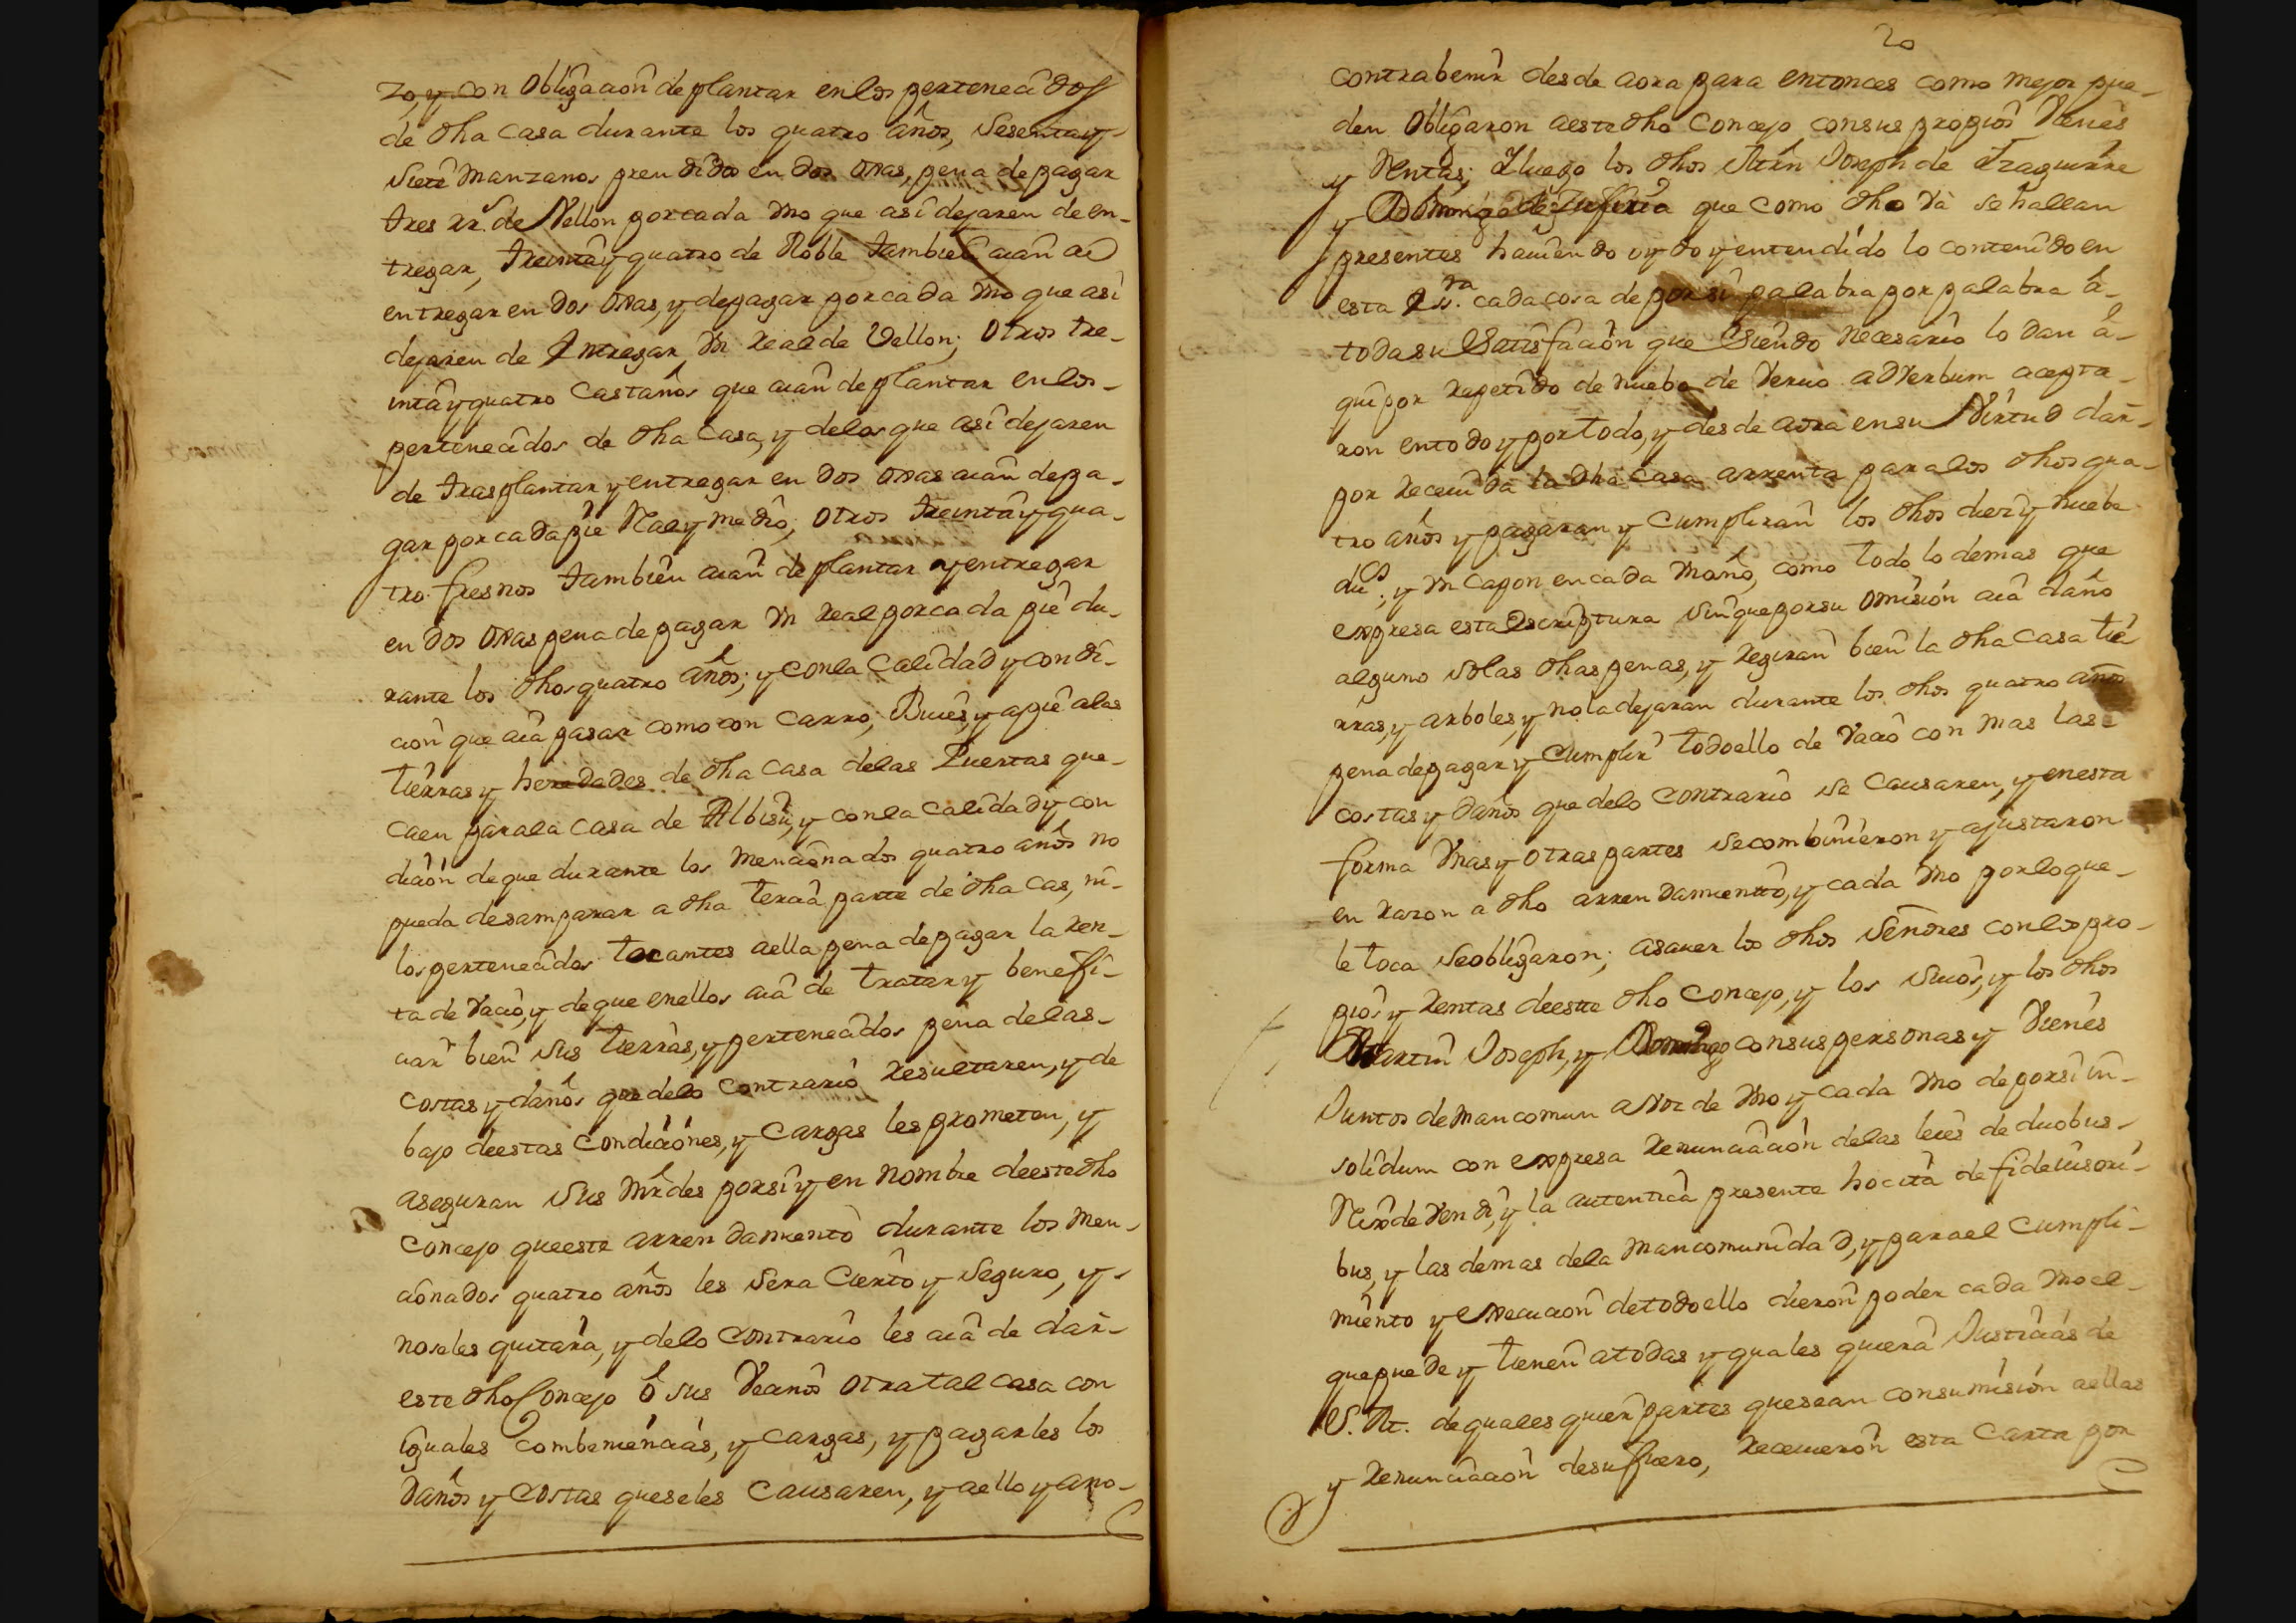 zo, y con obligacion de plantar en los pertenecidos
de dha casa durante los quatro años, sesenta y
siete manzanos prendidos en dos oxas, pena de pagar
tres rr.s de Vellon por cada Vno que asi dejaren de en-
tregar, treinta y quatro de Roble tambien
entregar en dos oxas, y de pagar por cada Vno que asi
dejaren de Entregar Vn real de Vellon; otros tre-
inta y quatro Castaños que aian de plantar en los
pertenecidos de dha Casa, y de los que asi dejaren
de trasplantar y entregar en dos oxas aian de pa-
gar por cada pie Real y medio, otros treinta y qua-
tro fresnos tambien aian de plantar y entregar
en dos oxas pena de pagar Vn real por cada pie du-
rante los dhos quatro años; y con la Calidad y condi-
cion que aia pasar como con Carro, Buies, y a pie a las
tierras y heredades de dha Casa de las Puertas que
caen para la Casa de Albisu, y con la Calidad y con
dicion de que durante los mencionados quatro años no
pueda desamparar a dha tercia parte de dha Cas, ni-
los pertenecidos tocantes a ella pena de pagar la ren-
ta de Vacio, y de que en ellos aia de tratar y benefi-
ciar bien sus tierras, y pertenecidos pena de las
costas y daños que de lo Contrario resultaren, y de
bajo de estas Condiciones, y Cargas les prometen, y
aseguran sus Mrdes por si y en nombre de este dho
Concejo que este arrendamiento durante los men-
cionados quatro años les sera Cierto y seguro, y
no se les quitara, y de lo Contrario les aia de dar
este dho Concejo ò sus Vecinos otra tal casa con
iguales combeniencias, y Cargas, y pagarles los
Daños y Costas que se les Causaren, y a ello y a no-
20
contrabenir desde aora para entonces como mejor pue-
den obligaron a este dho Concejo con sus propios Vienes
y Rentas; Y luego los dhos Mrtn Joseph de Yzaguirre
y Domingo de que como dho Và se hallan
presentes haviendo oydo y entendido lo contenido en
esta Es.ra cada cosa de por si palabra por palabra à
toda su satisfacion que siendo necesario lo dan à
qui por repetido de nuebo de Verbo adVerbum acepta-
ron en todo y por todo, y desde aora en su Virtud dan
por receuida la dha Casa arrenta para los dhos qua-
tro años y pagaran y Cumpliran los dhos diez y nuebe
du.s, y Vn Capon en cada Vn año, como todo lo demas que
expresa esta Escriptura sin que por su omision aia daño
alguno so las dhas penas, y regiran bien la dha Casa tie
rras, y arboles, y no la dejaran durante los dhos quatro años
pena de pagar y Cumplir todo ello de Vacio con mas las
costas y daños que de lo contrario se Causaren, y en esta
forma Vnas y otras partes se combinieron y ajustaron
en razon a dho arrendamiento, y cada Vno por lo que
le toca se obligaron; a sauer los dhos Señores con los pro-
pios y Rentas de este dho Concejo, y los suios, y los dhos
Martin Joseph, y Domingo con sus personas y Vienes
Juntos de mancomun a Voz de Vno y cada Vno de por si in-
solidum con expresa renunciacion de las leies de duobus
Rex de Vendi, y la autentica presente hocita de fideiusori-
bus, y las demas de la mancomunidad, y para el Cumpli-
miento y Execucion de todo ello dieron poder cada Vno el
que puede y tienen a todas y quales quiera Justicias de
S. M. de quales quier partes que sean con sumision a ellas
y renunciacion de su fuero, receuieron esta Carta por